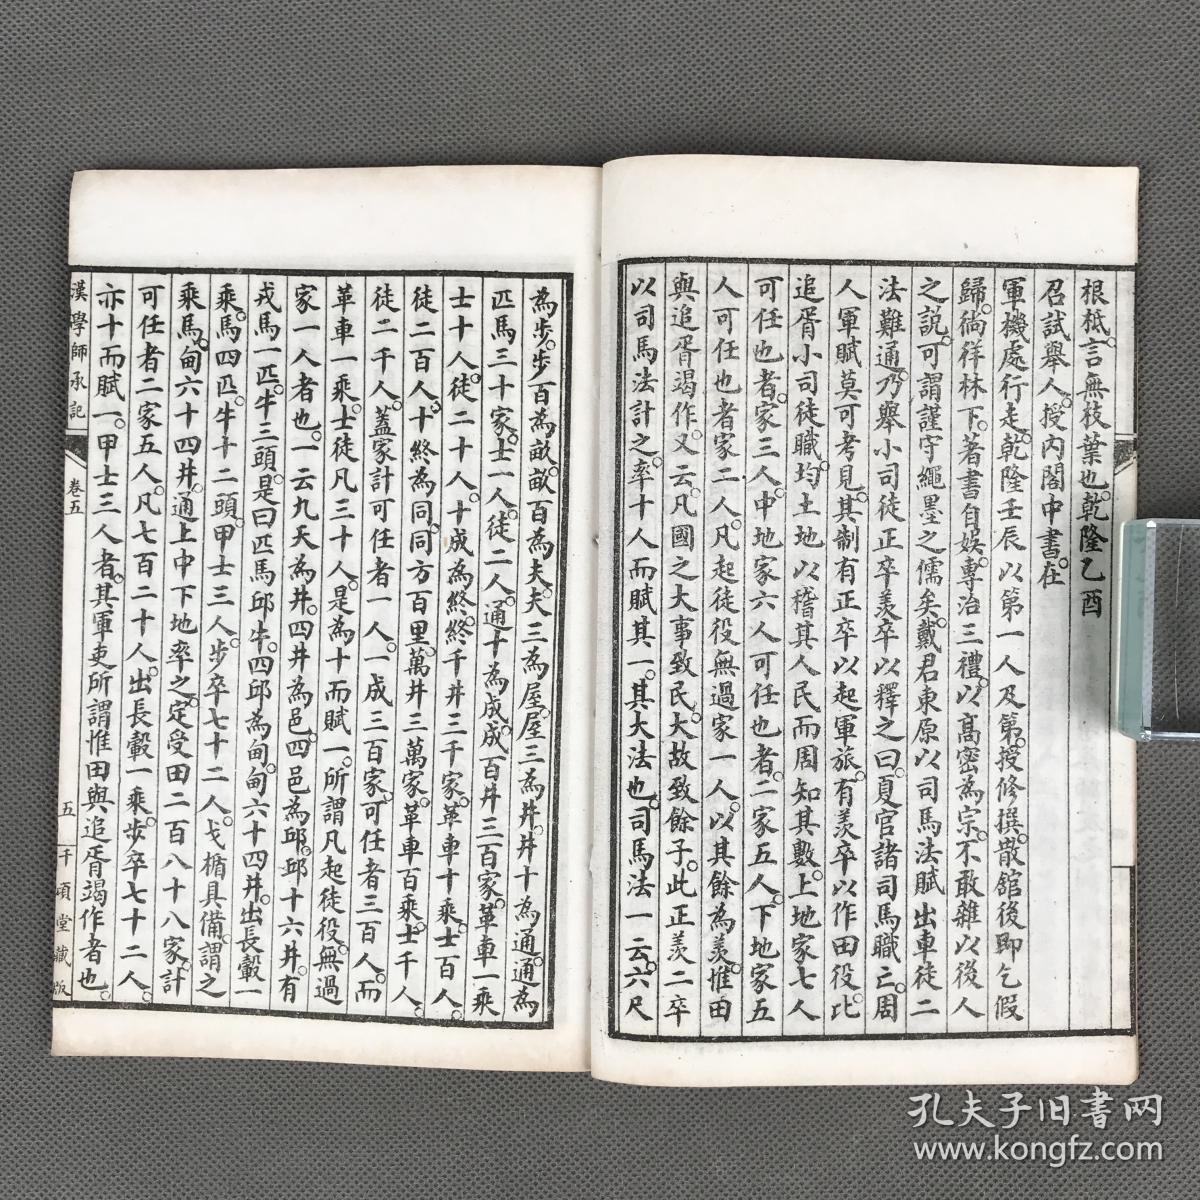 根柢言無枝葉也乾隆乙酉
召試舉人授内閣中書在
軍機處行走乾隆壬辰以第一人及第授修撰散舘後即乞假
歸徜徉林下著書自娱專治三禮以高密為宗不敢雜以後人
之說可謂謹守繩墨之儒矣戴君東原以司馬法賦出車徒二
法難通乃舉小司徒正卒羨卒以釋之曰夏官諸司馬職亡周
人軍賦莫可考見其制有正卒以起軍旅有羨卒以作田役比
追胥小司徒職均土地以稽其人民而周知其數上地家七人
可任也者家三人中地家六人可任也者二家五人下地家五
人可任也者家二人凡起徒役無過家一人以其餘為羨惟田
與追胥竭作又云凡國之大事致民大故致餘子此正羨二卒
以司馬法計之率十人而賦其一其大法也司馬法一云六尺
為步步百為畝畝百為夫夫三為屋屋三為井井十為通通為
匹馬三十家士一人徒二人通十為成成百井三百家革車一乘
士十人徒二十人十成為終終千井三千家革車十乘士百人
徒二百人十終為同同方百里萬井三萬家革車百乘士千人
徒二千人蓋家計可任者一人一成三百家可任者三百人而
革車一乘士徒凡三十人是為十而賦一所謂凡起徒役無過
家一人者也一云九夫為井四井為邑四邑為邱邱十六井有
戎馬一匹牛三頭是曰匹馬邱牛四邱為甸甸六十四井出長轂一
乘馬四匹牛十二頭甲士三人步卒七十二人戈楯具備謂之
乘馬甸六十四井通上中下地率之定受田二百八十八家計
可任者二家五人凡七百二十人出長轂一乘步卒七十二人
亦十而賦一甲士三人者其軍吏所謂惟田與追胥竭作者也
漢學師承記
卷五
五
千頃堂藏版
孔夫子旧書网
www.kongfz.com